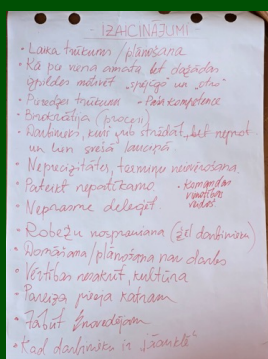 - IZAICINĀJUMI -
• Laika trūkums / plānošana
• Kā pie viena amata, bet dažādas
"spējīgo" un "otro"
• Pieredzes trūkums - Pašu kompetence
• Birokrātija (procesi)
• Darbinieks, kurš strādāt, bet
un svešā lauciņā.
• Neprecizitātes, termiņu neievērošana.
• Pateikt nepatīkamo.
• Komandas
vērtības
• Neprasme deleģēt
• Robežu nospraušana (žēl darbinieku)
• Domāšana / plānošana nav darbs
• Vērtības nesakrīt, kultūra
• Pareizā pieeja katram
• Žābūt
• Kad darbinieks ir "jāauklē"